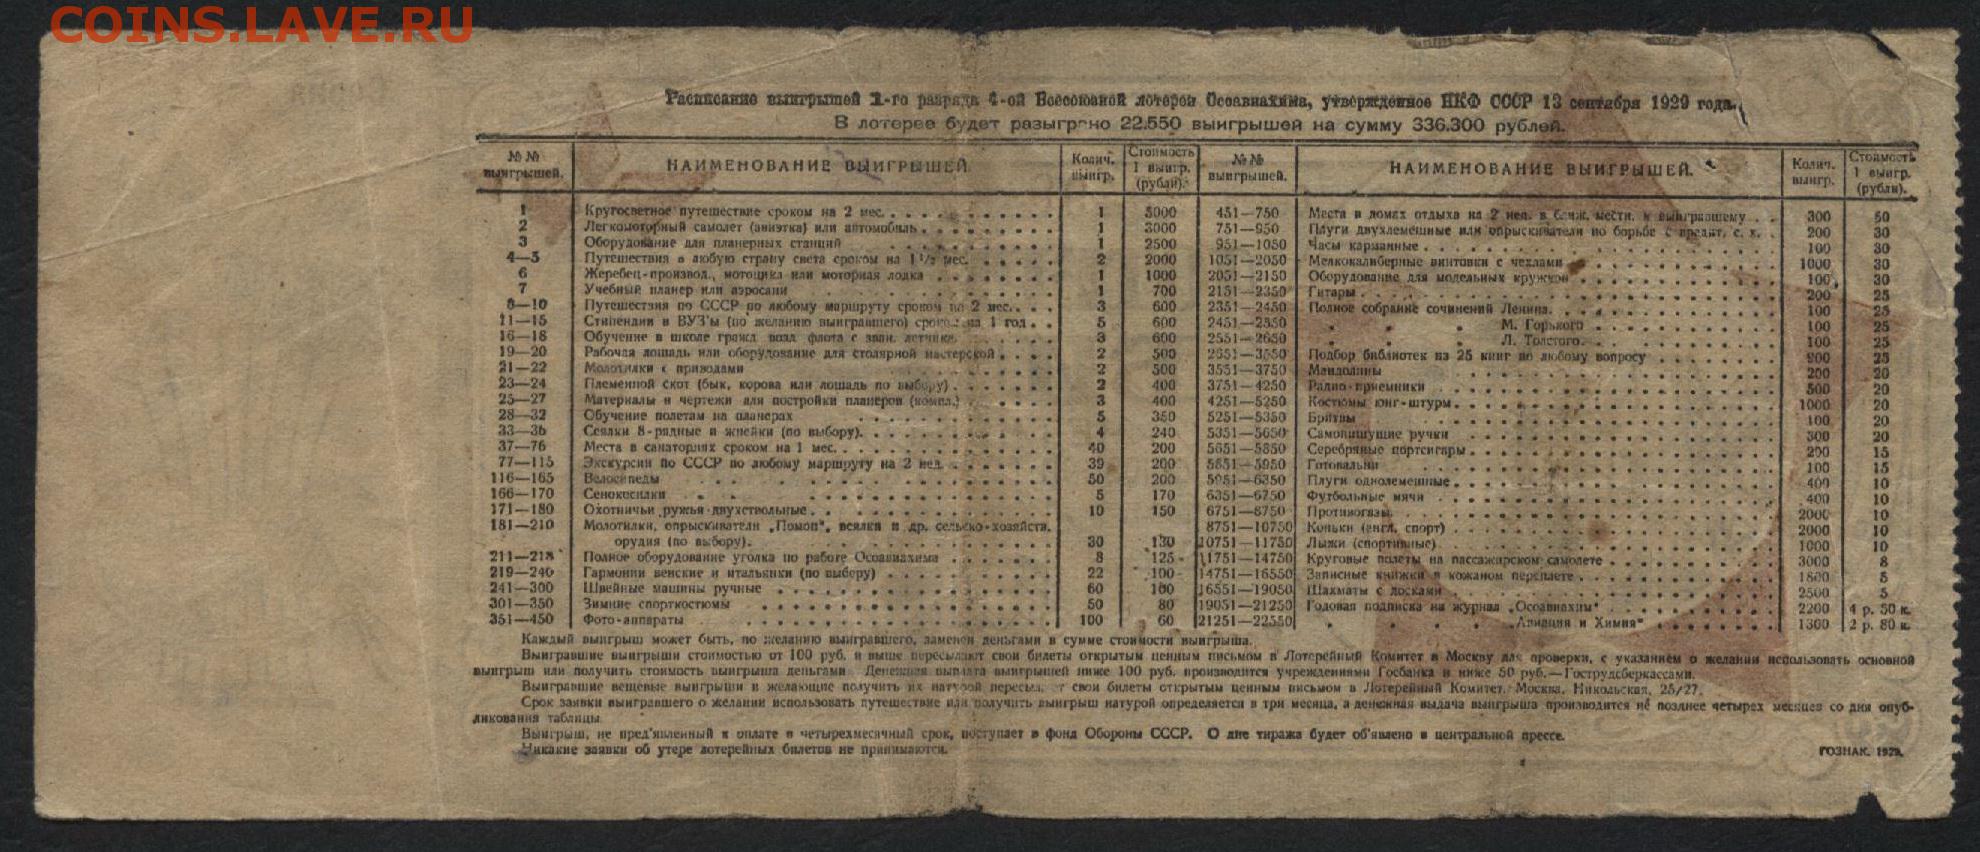 COINS.LAVE.RU
Расписание выигрышей 1-го разряда 4-ой Всесоюзной лотереи Осоавиахима, утвержденное НКФ СССР 13 сентября 1929 года.
В лотерее будет разыграно 22.550 выигрышей на сумму 336.300 рублей.
№№ выигрышей. НАИМЕНОВАНИЕ ВЫИГРЫШЕЙ. Колич. выигр. Стоимость 1 выигр. (рубли).
1 Кругосветное путешествие сроком на 2 мес. 1 5000
2 Легкомоторный самолет (авиэтка) или автомобиль 1 3000
3 Оборудование для планерных станций 1 2500
4—5 Путешествия в любую страну света сроком на 1 1/2 мес. 2 2000
6 Жеребец-производ., мотоцикл или моторная лодка 1 1000
7 Учебный планер или аэросани 1 700
8—10 Путешествия по СССР по любому маршруту сроком на 2 мес. 3 600
11—15 Стипендии в ВУЗ'ы (по желанию выигравшего) сроком на 1 год 5 600
16—18 Обучение в школе гражд. возд. флота с зван. летчика 3 600
19—20 Рабочая лошадь или оборудование для столярной мастерской 2 500
21—22 Молотилки с приводами 2 500
23—24 Племенной скот (бык, корова или лошадь по выбору) 2 400
25—27 Материалы и чертежи для постройки планеров (компл.) 3 400
28—32 Обучение полетам на планерах 5 350
33—36 Сеялки 8-рядные и жнейки (по выбору). 4 240
37—76 Места в санаториях сроком на 1 мес. 40 200
77—115 Экскурсии по СССР по любому маршруту на 2 нед. 39 200
116—165 Велосипеды 50 200
166—170 Сенокосилки 5 170
171—180 Охотничьи ружья двухствольные 10 150
181—210 Молотилки, опрыскиватели „Помоп“, веялки и др. сельско-хозяйств.
орудия (по выбору). 30 130
211—218 Полное оборудование уголка по работе Осоавиахима 8 125
219—240 Гармонии венские и итальянки (по выбору) 22 100
241—300 Швейные машины ручные 60 100
301—350 Зимние спорткостюмы 50 80
351—450 Фото-аппараты 100 60
№№ выигрышей. НАИМЕНОВАНИЕ ВЫИГРЫШЕЙ. Колич. выигр. Стоимость 1 выигр. (рубли).
451—750 Места в домах отдыха на 2 нед. в ближ. местн. к выигравшему 300 50
751—950 Плуги двухлемешные или опрыскиватели по борьбе с вредит. с. х. 200 30
951—1050 Часы карманные 100 30
1051—2050 Мелкокалиберные винтовки с чехлами 1000 30
2051—2150 Оборудование для модельных кружков 100 30
2151—2350 Гитары 200 25
2351—2450 Полное собрание сочинений Ленина 100 25
2451—2550 „ „ „ М. Горького 100 25
2551—2650 „ „ „ Л. Толстого 100 25
2651—3550 Подбор библиотек из 25 книг по любому вопросу 900 25
3551—3750 Мандолины 200 20
3751—4250 Радио-приемники 500 20
4251—5250 Костюмы юнг-штурм 1000 20
5251—5350 Бритвы 100 20
5351—5650 Самопишущие ручки 300 20
5651—5850 Серебряные портсигары 200 15
5851—5950 Готовальни 100 15
5951—6350 Плуги однолемешные 400 10
6351—6750 Футбольные мячи 400 10
6751—8750 Противогазы 2000 10
8751—10750 Коньки (англ. спорт) 2000 10
10751—11750 Лыжи (спортивные) 1000 10
11751—14750 Круговые полеты на пассажирском самолете 3000 8
14751—16550 Записные книжки в кожаном переплете 1800 5
16551—19050 Шахматы с досками 2500 5
19051—21250 Годовая подписка на журнал „Осоавиахим“ 2200 4 р. 50 к.
21251—22550 „ „ „ „Авиация и Химия“ 1300 2 р. 80 к.
Каждый выигрыш может быть, по желанию выигравшего, заменен деньгами в сумме стоимости выигрыша.
Выигравшие выигрыши стоимостью от 100 руб. и выше пересылают свои билеты открытым ценным письмом в Лотерейный Комитет в Москву для проверки, с указанием о желании использовать основной
выигрыш или получить стоимость выигрыша деньгами. Денежная выплата выигрышей ниже 100 руб. производится учреждениями Госбанка и ниже 50 руб.—Гострудсберкассами.
Выигравшие вещевые выигрыши и желающие получить их натурой пересылают свои билеты открытым ценным письмом в Лотерейный Комитет. Москва, Никольская, 25/27.
Срок заявки выигравшего о желании использовать путешествие или получить выигрыш натурой определяется в три месяца, а денежная выдача выигрыша производится не позднее четырех месяцев со дня опуб-
ликования таблицы.
Выигрыш, не пред'явленный к оплате в четырехмесячный срок, поступает в фонд Обороны СССР. О дне тиража будет об'явлено в центральной прессе.
Никакие заявки об утере лотерейных билетов не принимаются.
ГОЗНАК. 1929.